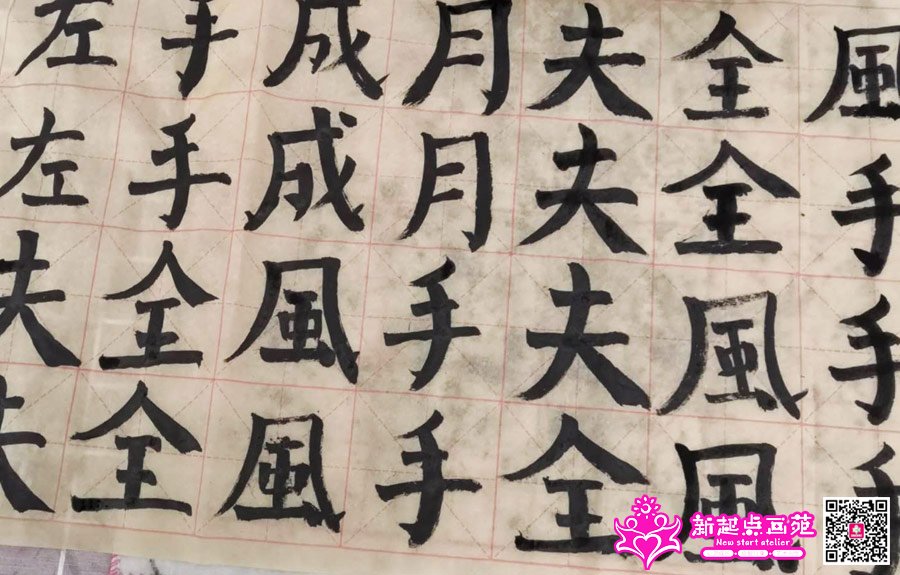 左手成月夫全風
左手成月夫全手
夫全風手夫風手
夫全風手全風手
新起点画苑
New start atelier